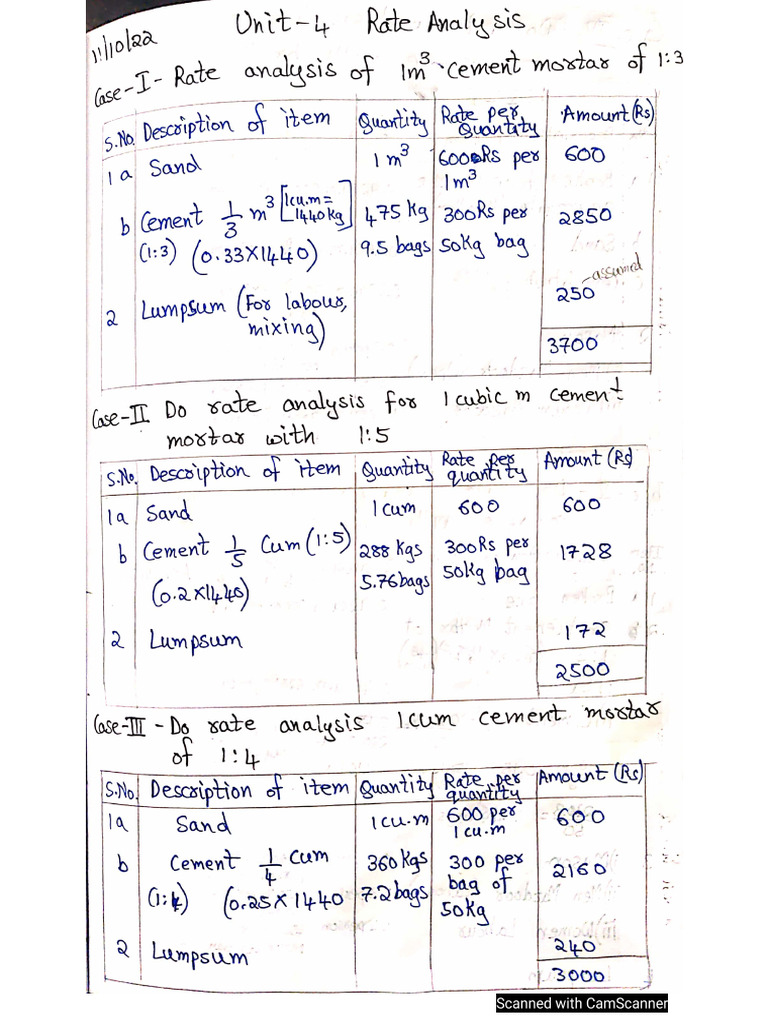 11/10/22
Unit-4 Rate Analysis
Case-I- Rate analysis of 1m³ cement mortar of 1:3
S.No. Description of item Quantity Rate per Quantity Amount (Rs)
1a Sand 1 m³ 600 Rs per 1m³ 600
b Cement 1/3 m³ [1cu.m= 1440 kg] 475 Kg 300 Rs per 2850
(1:3) (0.33X1440) 9.5 bags 50Kg bag
2 Lumpsum (For labour, mixing) 250 assumed
3700
Case-II Do rate analysis for 1 cubic m cement
mortar with 1:5
S.No. Description of item Quantity Rate per quantity Amount (Rs)
1a Sand 1 cum 600 600
b Cement 1/5 Cum (1:5) 288 Kgs 300Rs per 1728
(0.2X1440) 5.76 bags 50Kg bag
2 Lumpsum 172
2500
Case-III - Do rate analysis 1 cum cement mortar
of 1:4
S.No. Description of item Quantity Rate per quantity Amount (Rs)
1a Sand 1 cu.m 600 per 1 cu.m 600
b Cement 1/4 cum 360 kgs 300 per 2160
(1:4) (0.25X1440 7.2 bags bag of 50Kg
2 Lumpsum 240
3000
Scanned with CamScanner